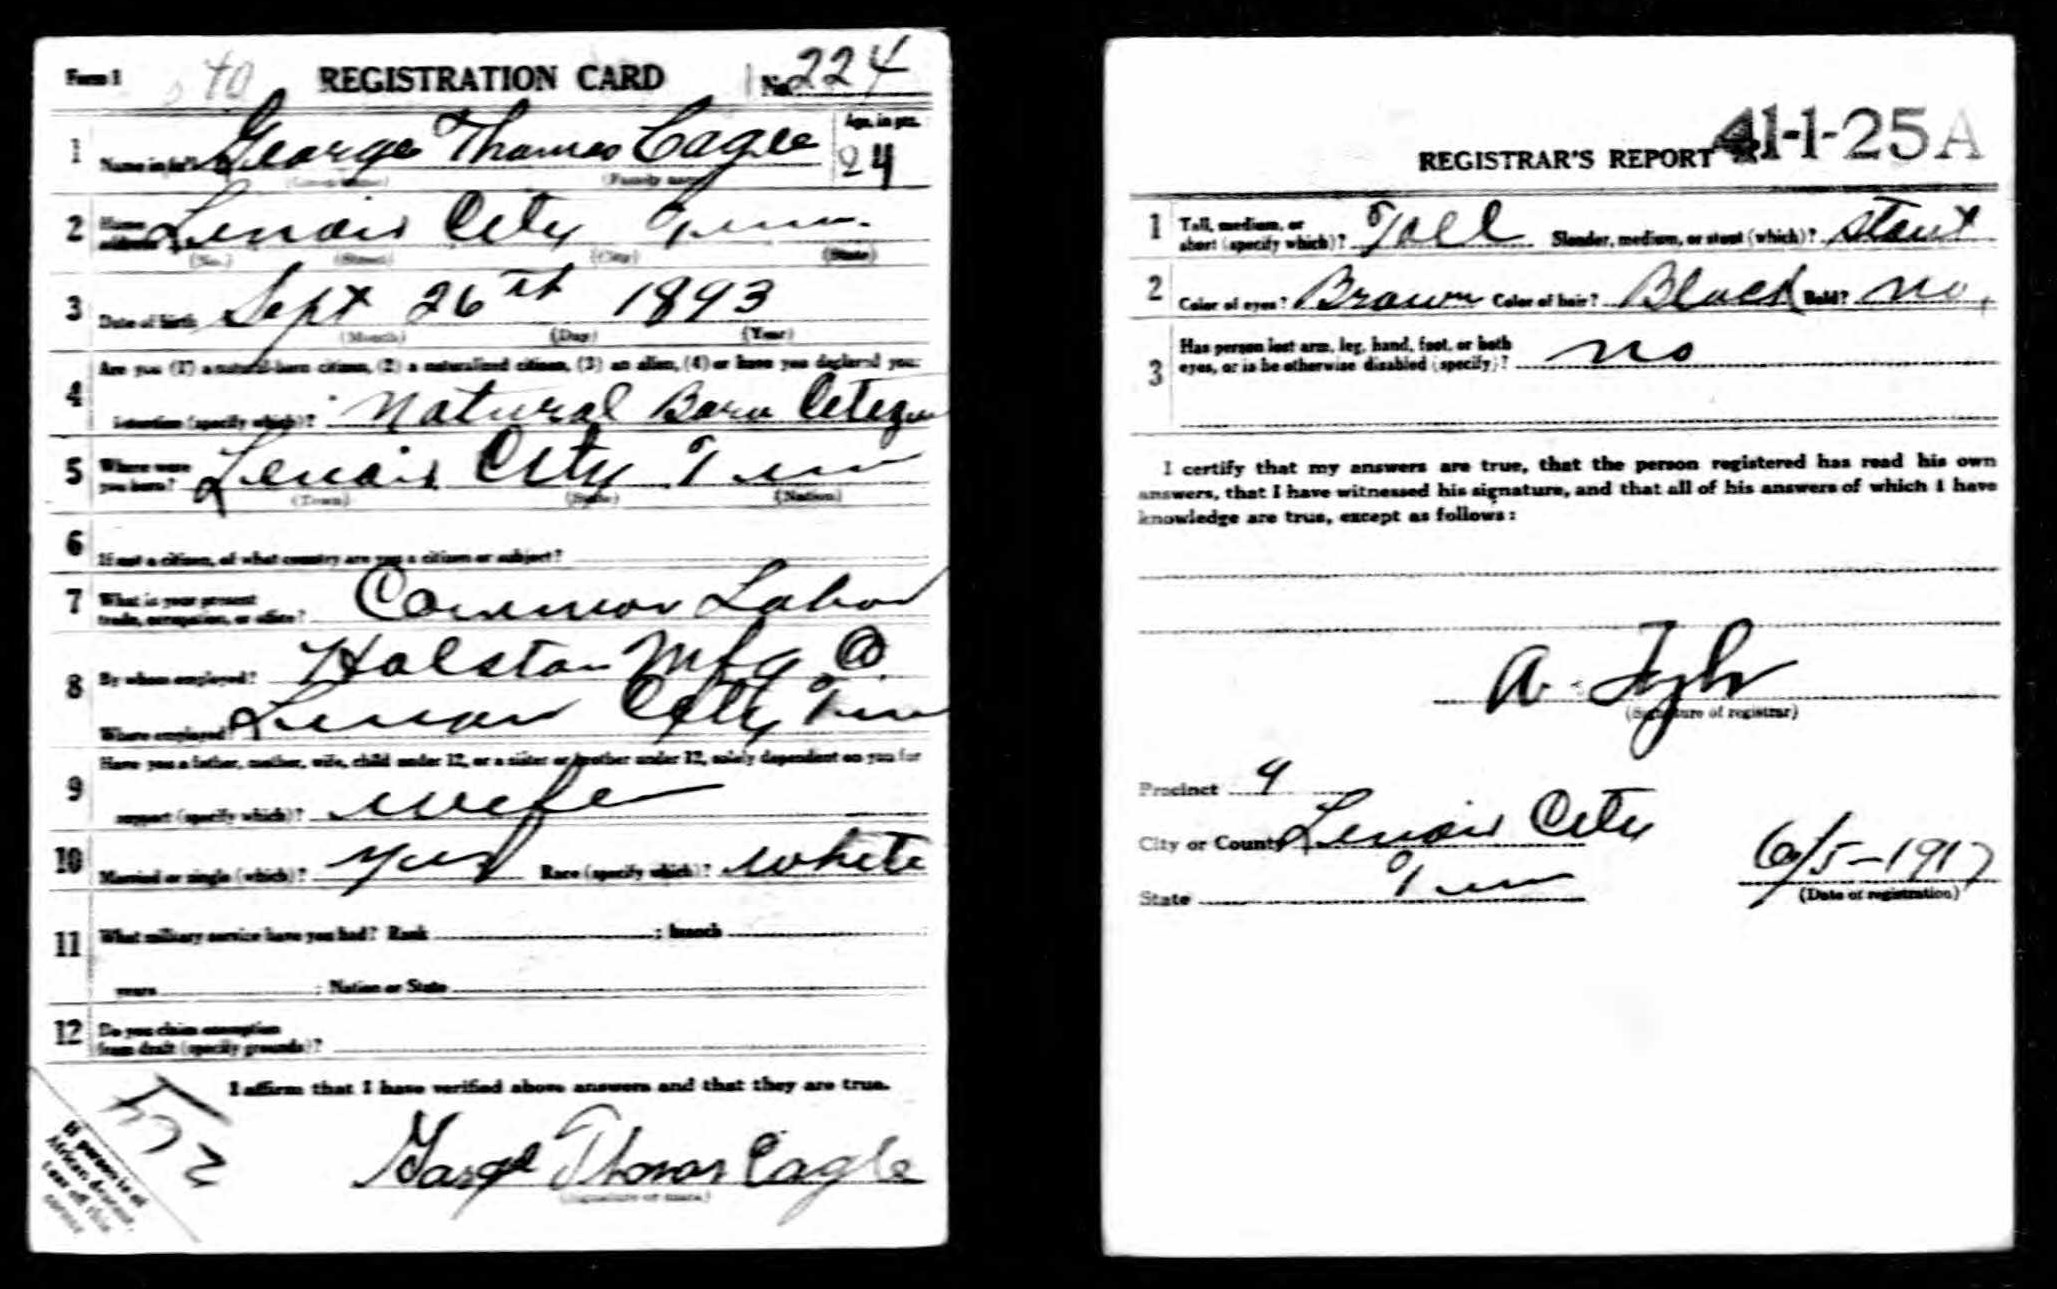 Form 1 REGISTRATION CARD No. 224
1 Name in full George Thomas Cagle Age, in yrs. 24
(Given name) (Family name)
2 Home address Lenoir City Tenn.
(No.) (Street) (City) (State)
3 Date of birth Sept 26th 1893
(Month) (Day) (Year)
4 Are you (1) a natural-born citizen, (2) a naturalized citizen, (3) an alien, (4) or have you declared your
intention (specify which)? Natural Born Citezen
5 Where were you born? Lenoir City Tenn
(Town) (State) (Nation)
6 If not a citizen, of what country are you a citizen or subject?
7 What is your present
trade, occupation, or office? Common Labor
8 By whom employed? Holston Mfg Co
Where employed Lenoir City Tenn
9 Have you a father, mother, wife, child under 12, or a sister or brother under 12, solely dependent on you for
support (specify which)? wife
10 Married or single (which)? yes Race (specify which)? white
11 What military service have you had? Rank ; branch
years ; Nation or State
12 Do you claim exemption
from draft (specify grounds)?
I affirm that I have verified above answers and that they are true.
George Thomas Cagle
(Signature or mark)
If person is of
African descent,
tear off this
corner
REGISTRAR'S REPORT 41-1-25 A
1 Tall, medium, or
short (specify which)? Tall Slender, medium, or stout (which)? stout
2 Color of eyes? Brown Color of hair? Black Bald? no,
3 Has person lost arm, leg, hand, foot, or both
eyes, or is he otherwise disabled (specify)? no
I certify that my answers are true, that the person registered has read his own
answers, that I have witnessed his signature, and that all of his answers of which I have
knowledge are true, except as follows:
A.
(Signature of registrar)
Precinct 4
City or County Lenoir City
State Tenn
6/5-1917
(Date of registration)